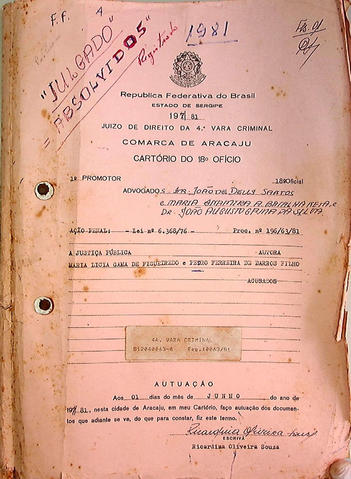 F.F. 4
1981
Fls. 01
"JULGADO"
= ABSOLVIDOS"
Registrado
República Federativa do Brasil
ESTADO DE SERGIPE
1971/81
JUIZO DE DIREITO DA 4.ª VARA CRIMINAL
COMARCA DE ARACAJU
CARTÓRIO DO 18º OFÍCIO
1º PROMOTOR 18º Oficial
ADVOGADOS João de Santos
e MARIA
DR. JOÃO AUGUSTO DA SILVA
AÇÃO PENAL: - Lei nº 6.368/76 - Proc. nº 196/63/81
A JUSTIÇA PÚBLICA AUTORA
MARIA LICIA GAMA DE FIGUEIREDO e PEDRO FERREIRA DE BARROS FILHO
ACUSADOS
4A. VARA CRIMINAL
AUTUAÇÃO
Aos 01 dias do mês de JUNHO do ano de
1981, nesta cidade de Aracaju, em meu Cartório, faço autuação dos documen-
tos que adiante se va, do que para constar, fiz este termo.
ESCRIVÃ
Ricardina Oliveira Souza